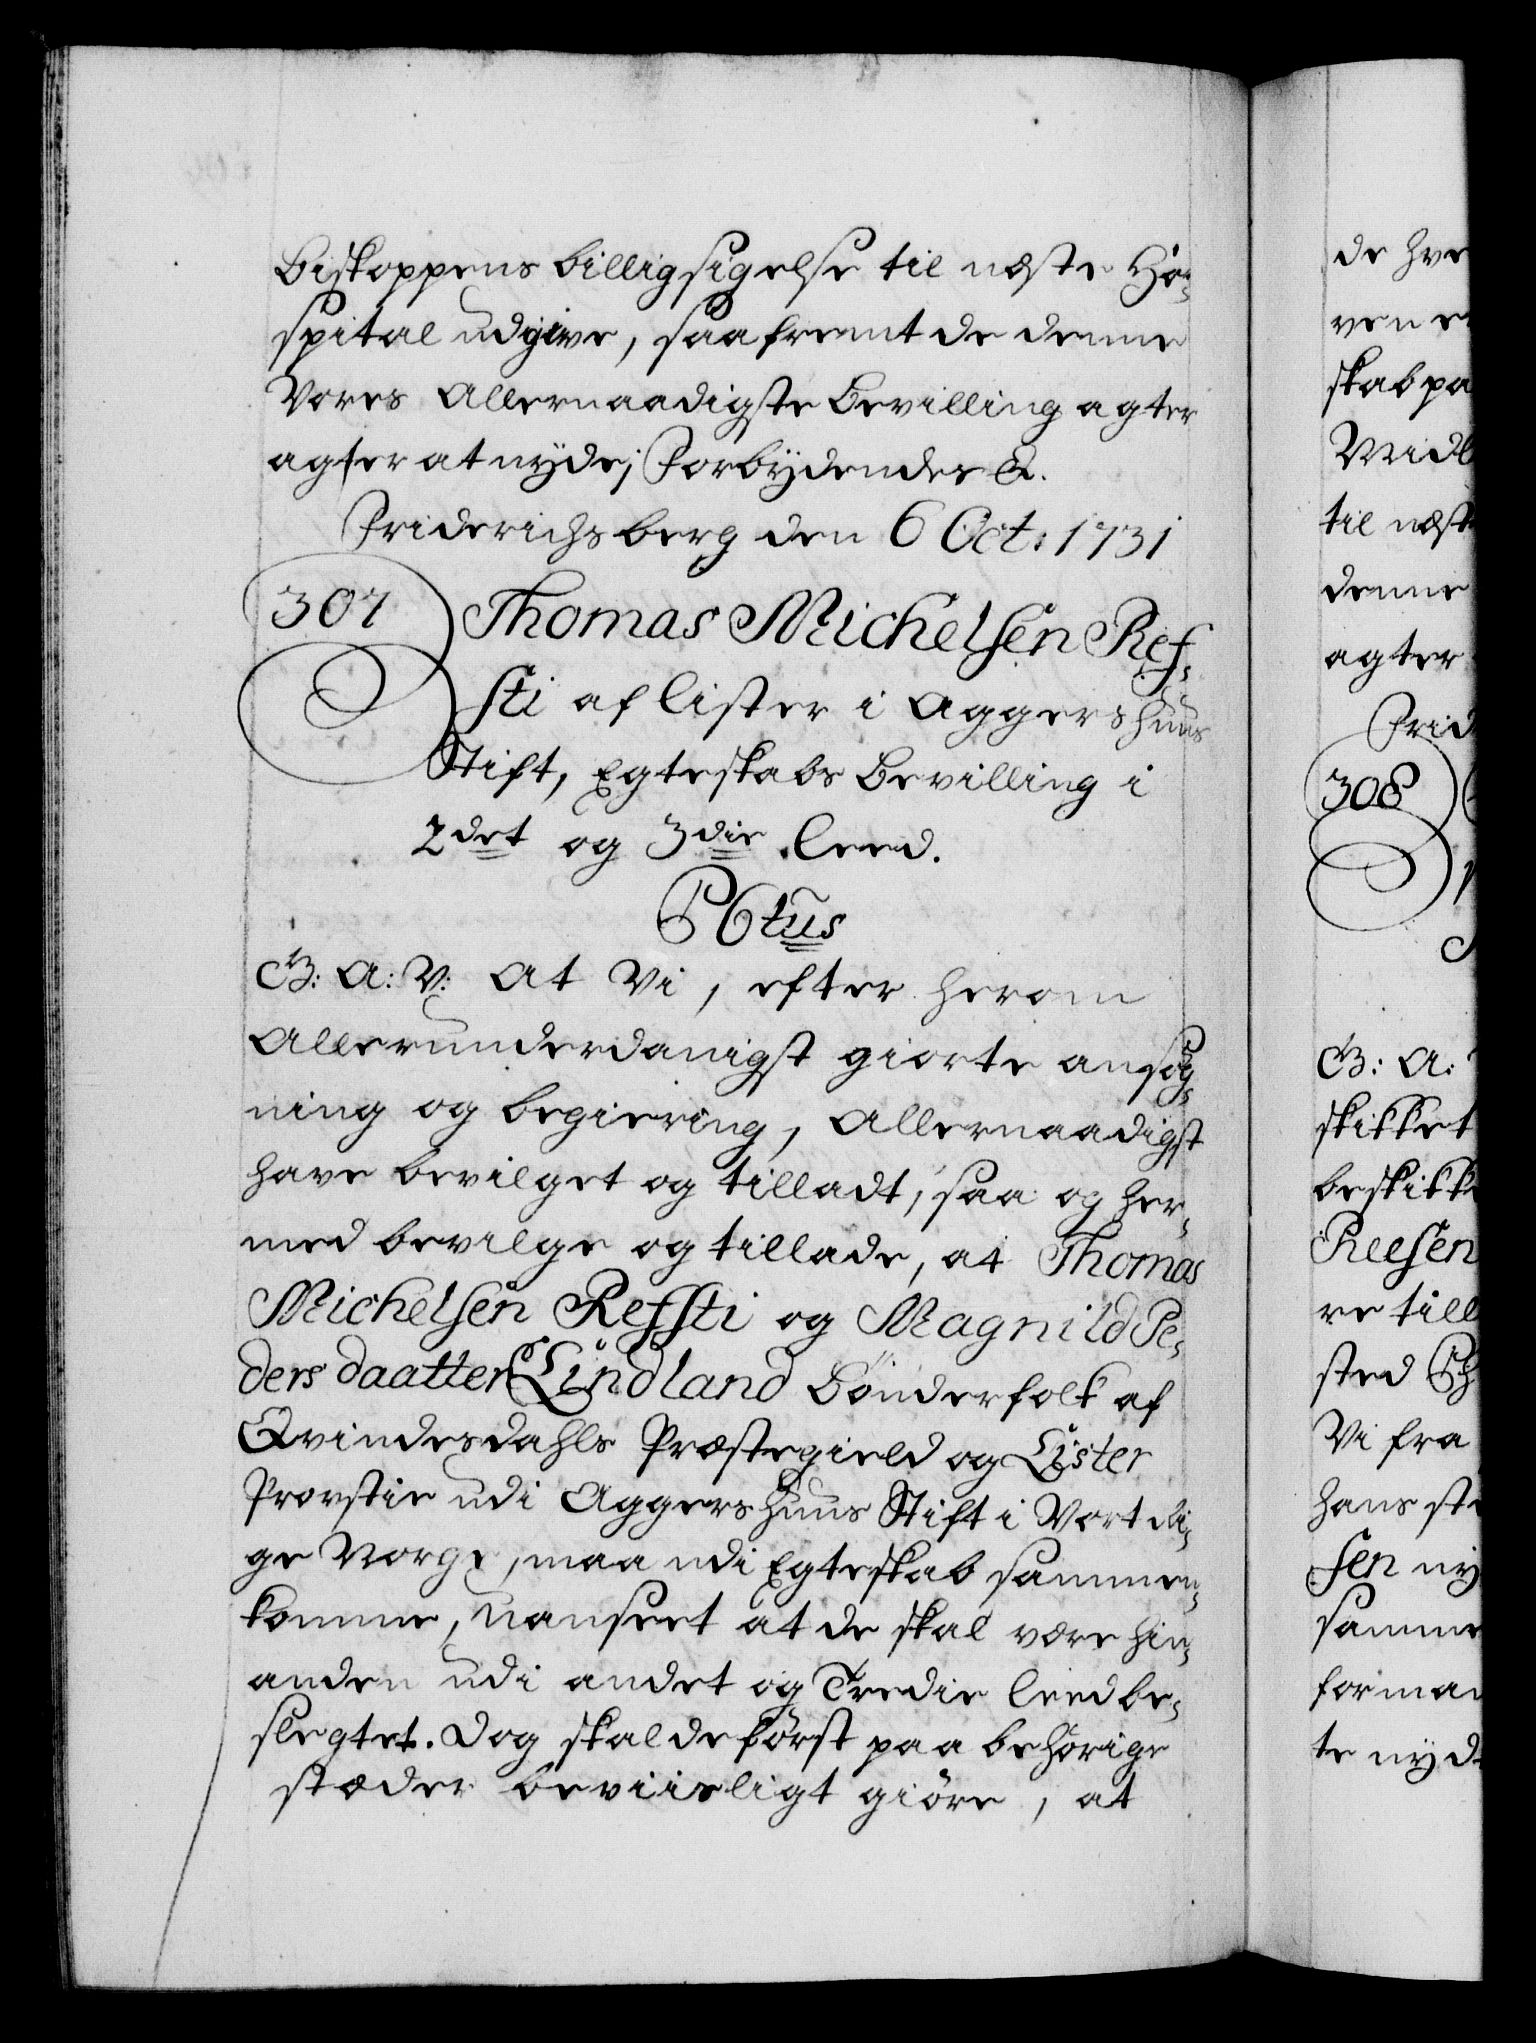 Biskoppens billigsigelse til næste Ho-
spital udgive, saafremt de denne
Vores Allernaadigste Bevilling agter
agter at nyde; Forbydendes &.
Friderichsberg den 6 Oct: 1731
307
Thomas Michelsen Ref-
sti af Lister i Aggershuus
Stift, Egteskabs Bevilling i
2det og 3die Leed.
C6tus
G: A: V: At Vi, efter herom
Allerunderdanigst giorte ansøg-
ning og begiering, Allernaadigst
have bevilget og tilladt, saa og her-
med bevilge og tillade, at Thomas
Michelsen Refsti og Magnild Pe-
ders daatter Lindland Bønderfolk af
Qvindesdahls Præstegield og Lister
Provstie udi Aggershuus Stift i Vort Ri-
ge Norge, maa udi Egteskab sammen-
komme, uanseet at de skal være hin-
anden udi andet og Tredie leed be-
slegtet. Dog skal de først paa behørige
stæder beviisligt giøre, at
de hve
ven e
skab pa
Midl
til næst
denne
agter
Frid
308
G: A:
skikket
beskikke
Reesen
re till
sted
Vi fra
hans ste
sen ny
samme
forman
te nyd